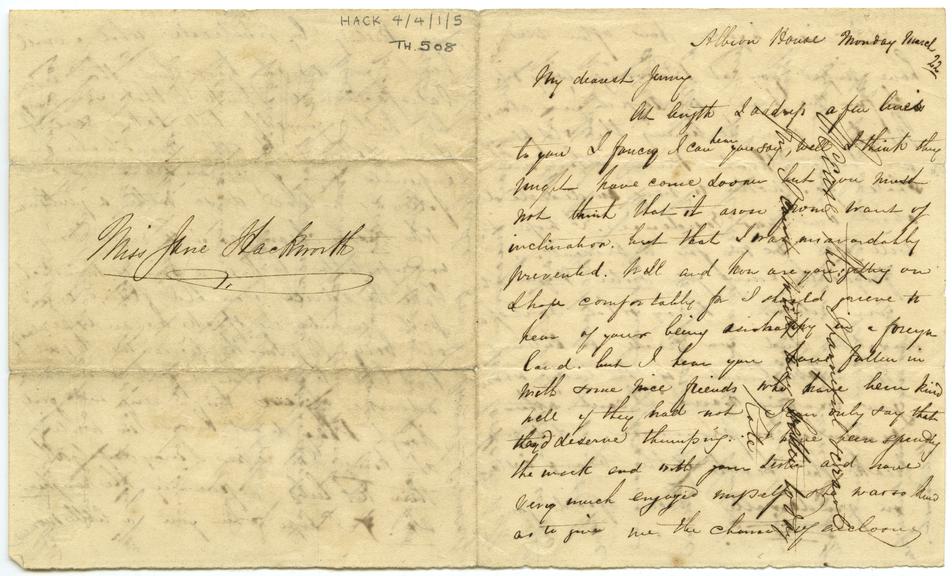 HACK 4/4/1/5
TH.508
Miss Jane Hackworth
Albion House Monday March 22
My dearest Jenny
At length I address a few lines
to you I fancy I can hear you say, well I think they
might have come sooner but you must
not think that it arose from want of
inclination. but that I was unavoidably
prevented. Well and how are you getting on
I hope comfortably for I should grieve to
hear of your being unhappy in a foreign
land. but I hear you have fallen in
with some nice friends who have been kind
well if they had not I can only say that
they'd deserve thumping. I have been spending
the week end with your sister and have
very much enjoyed myself she was so kind
as to give me the chance of
Excuse this
Kate